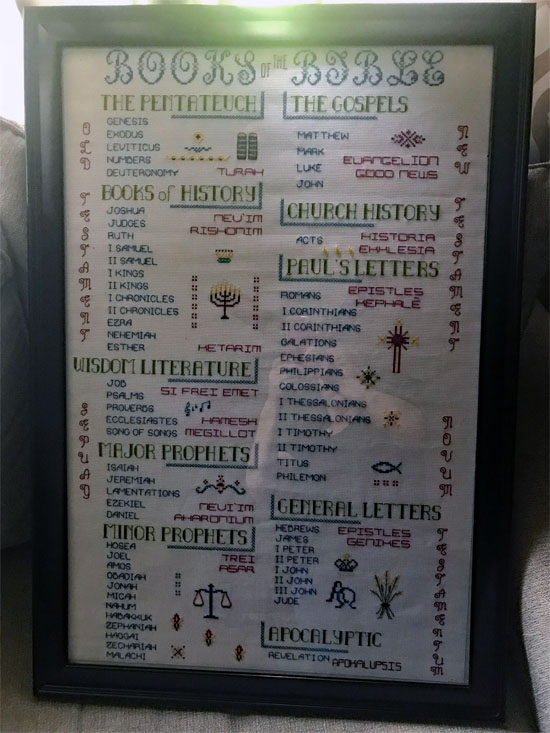 BOOKS OF THE BIBLE
OLD TESTAMENT
THE PENTATEUCH
GENESIS
EXODUS
LEVITICUS
NUMBERS
DEUTERONOMY
TURAH
BOOKS of HISTORY
JOSHUA
JUDGES
RUTH
I SAMUEL
II SAMUEL
I KINGS
II KINGS
I CHRONICLES
II CHRONICLES
EZRA
NEHEMIAH
ESTHER
NEV'IM
RISHONIM
KETARIM
WISDOM LITERATURE
JOB
PSALMS
PROVERBS
ECCLESIASTES
SONG OF SONGS
SI FREI EMET
HAMESH
MEGILLOT
MAJOR PROPHETS
ISAIAH
JEREMIAH
LAMENTATIONS
EZEKIEL
DANIEL
NEVI'IM
AHARONIUM
MINOR PROPHETS
HOSEA
JOEL
AMOS
OBADIAH
JONAH
MICAH
NAHUM
HABAKKUK
ZEPHANIAH
HAGGAI
ZECHARIAH
MALACHI
TREI
ASAR
THE GOSPELS
MATTHEW
MARK
LUKE
JOHN
EVANGELION
GOOD NEWS
CHURCH HISTORY
ACTS
HISTORIA
EKKLESIA
PAUL'S LETTERS
ROMANS
I CORINTHIANS
II CORINTHIANS
GALATIONS
EPHESIANS
PHILIPPIANS
COLOSSIANS
I THESSALONIANS
II THESSALONIANS
I TIMOTHY
II TIMOTHY
TITUS
PHILEMON
EPISTLES
KEPHALÉ
GENERAL LETTERS
HEBREWS
JAMES
I PETER
II PETER
I JOHN
II JOHN
III JOHN
JUDE
EPISTLES
GENIKES
APOCALYPTIC
REVELATION
APOKALUPSIS
NEW TESTAMENT
NOVUM TESTAMENTUM